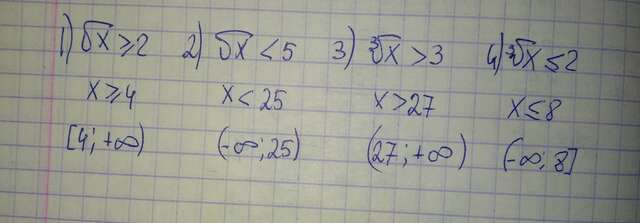 1) √x ≥ 2 2) √x < 5 3) ∛x > 3 4) ∛x ≤ 2
x ≥ 4 x < 25 x > 27 x ≤ 8
[4; +∞) (-∞; 25) (27; +∞) (-∞; 8]